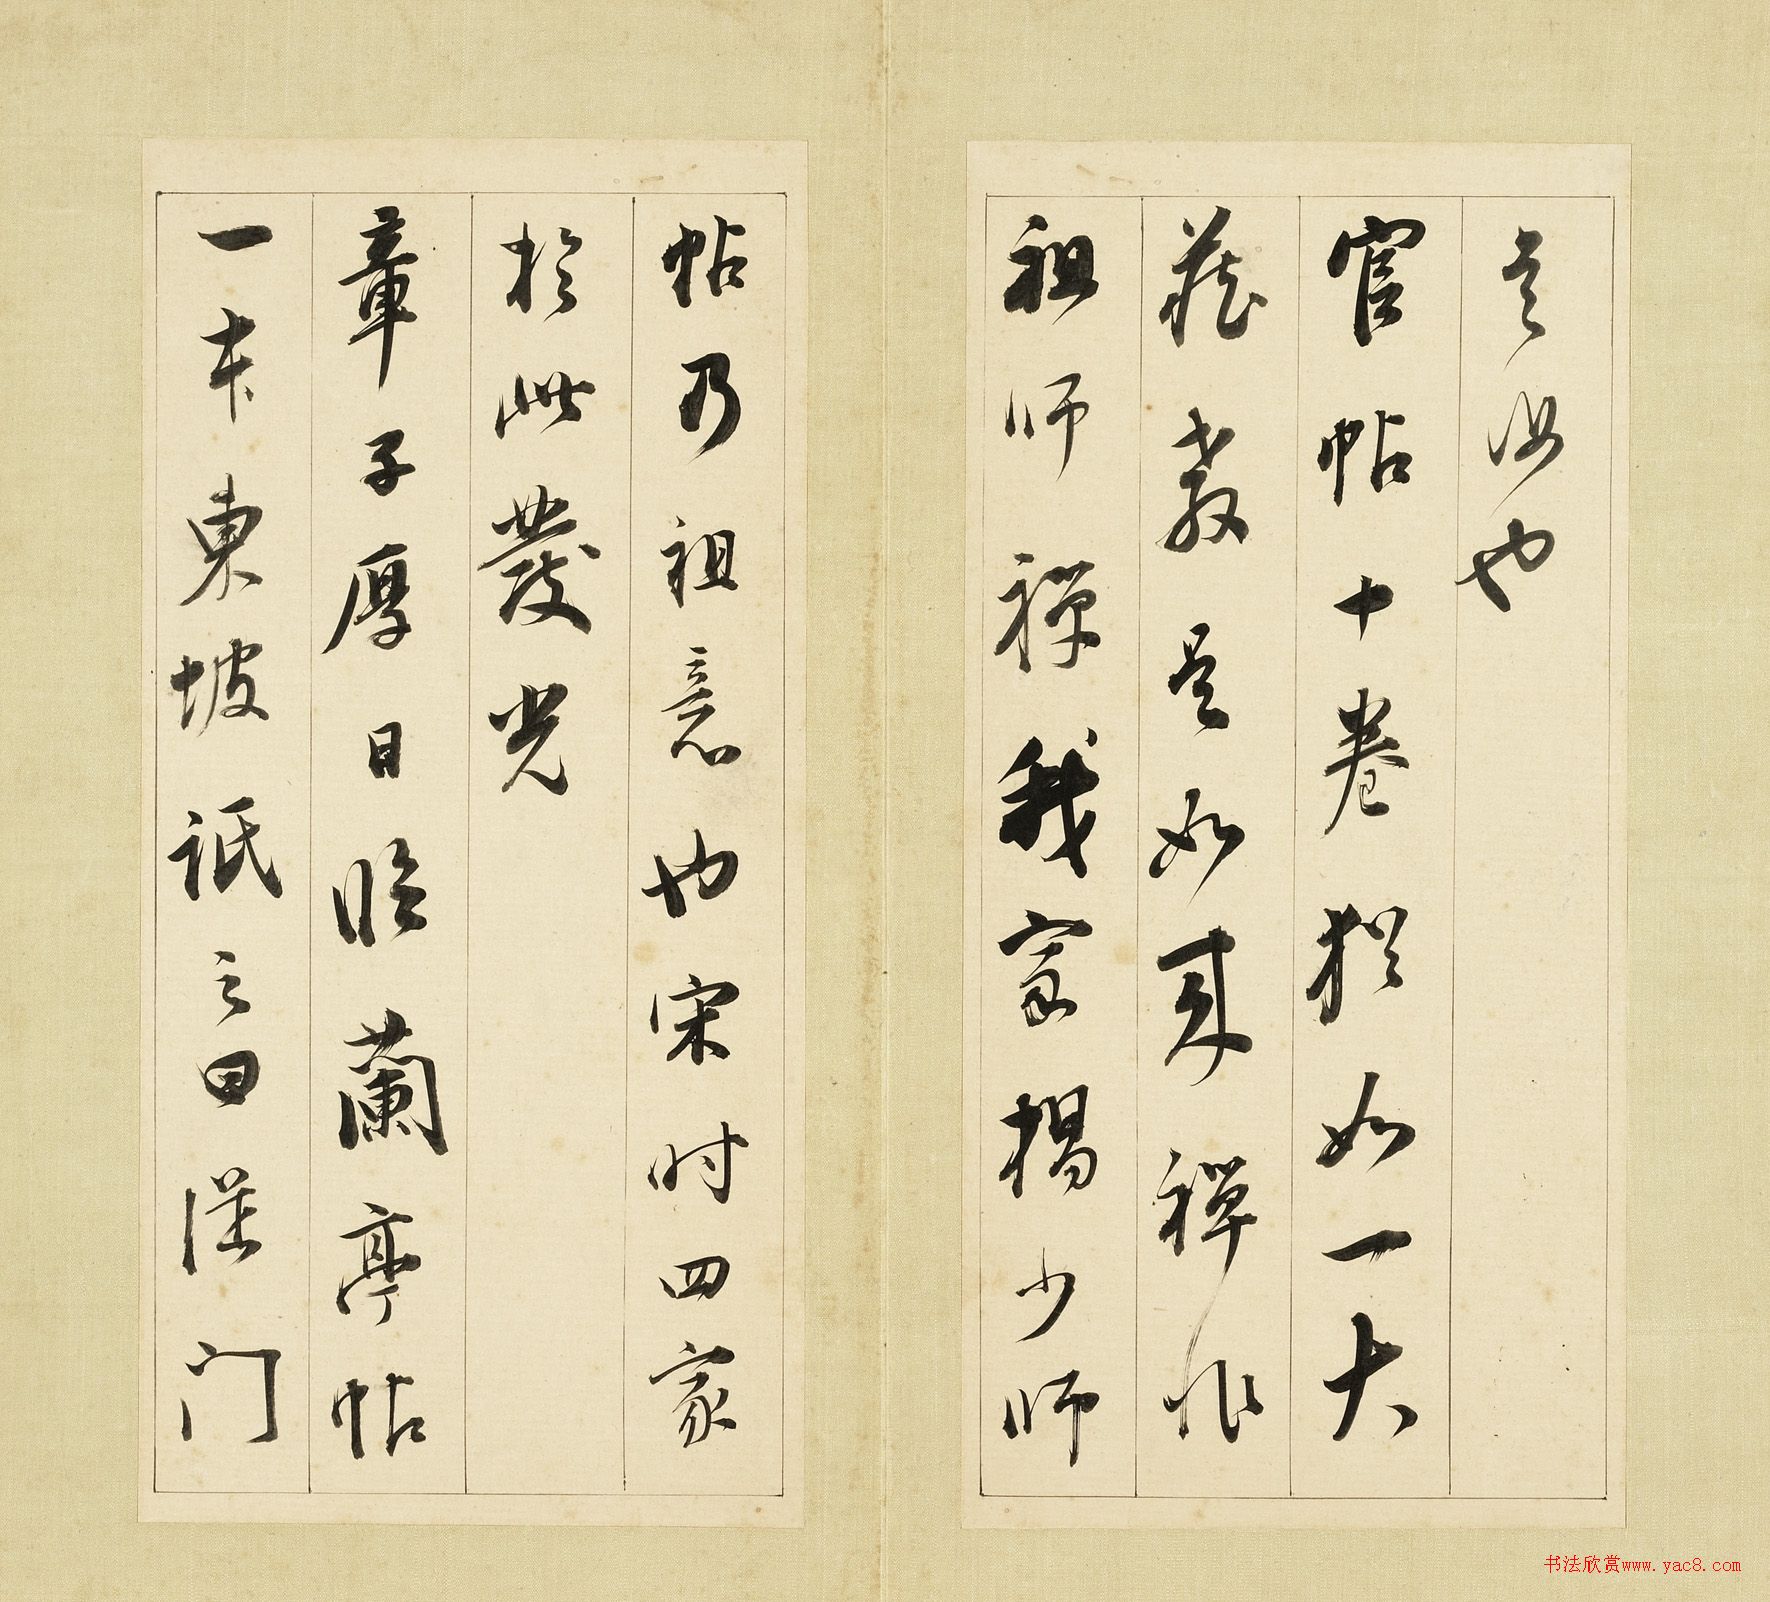 是汝也
官帖十卷猶如一大
藏教是如来禪非
祖师禪我家楊少师
帖乃祖意也宋时四家
於此發光
章子厚日临蘭亭帖
一本東坡诋之曰從门
书法欣赏www.yac8.com